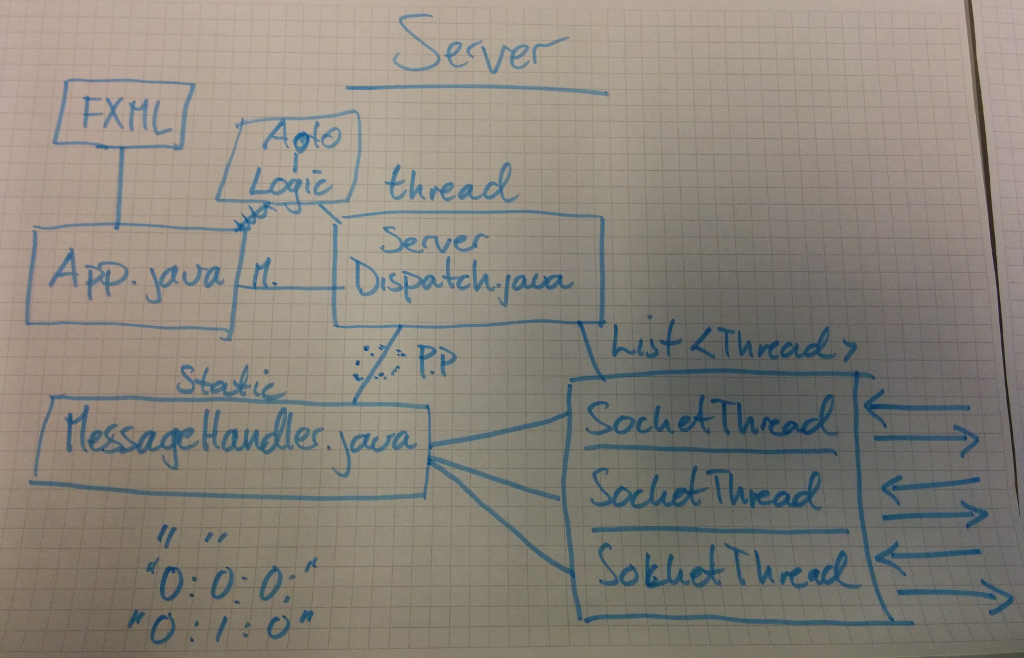 Server
FXML
Auto
Logic
thread
App.java
M.
Server
Dispatch.java
P.P
List <Thread>
Static
MessageHandler.java
SocketThread
SocketThread
SocketThread
" "
"0:0:0:"
"0:1:0"